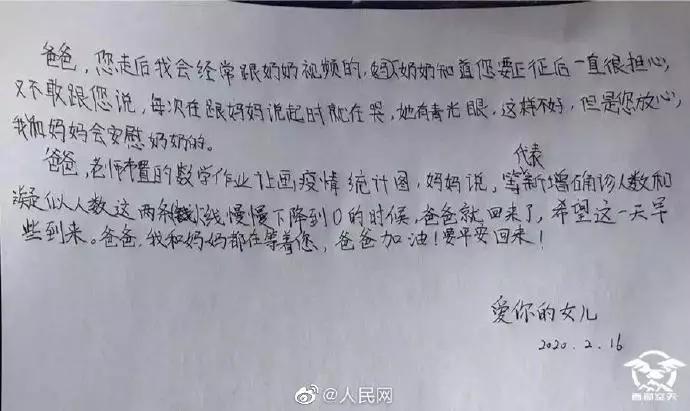 爸爸，您走后我会经常跟奶奶视频的，奶奶知道您要出征后一直很担心，
又不敢跟您说，每次在跟妈妈说起时就在哭，她有青光眼，这样不好，但是您放心，
我和妈妈会安慰奶奶的。
爸爸，老师布置的数学作业让画疫情统计图，妈妈说，等代表新增确诊人数和
凝似人数这两条线，慢慢下降到0的时候，爸爸就回来了，希望这一天早
些到来。爸爸，我和妈妈都在等着您，爸爸加油！要平安回来！
爱你的女儿
2020.2.16
@人民网
西部空天